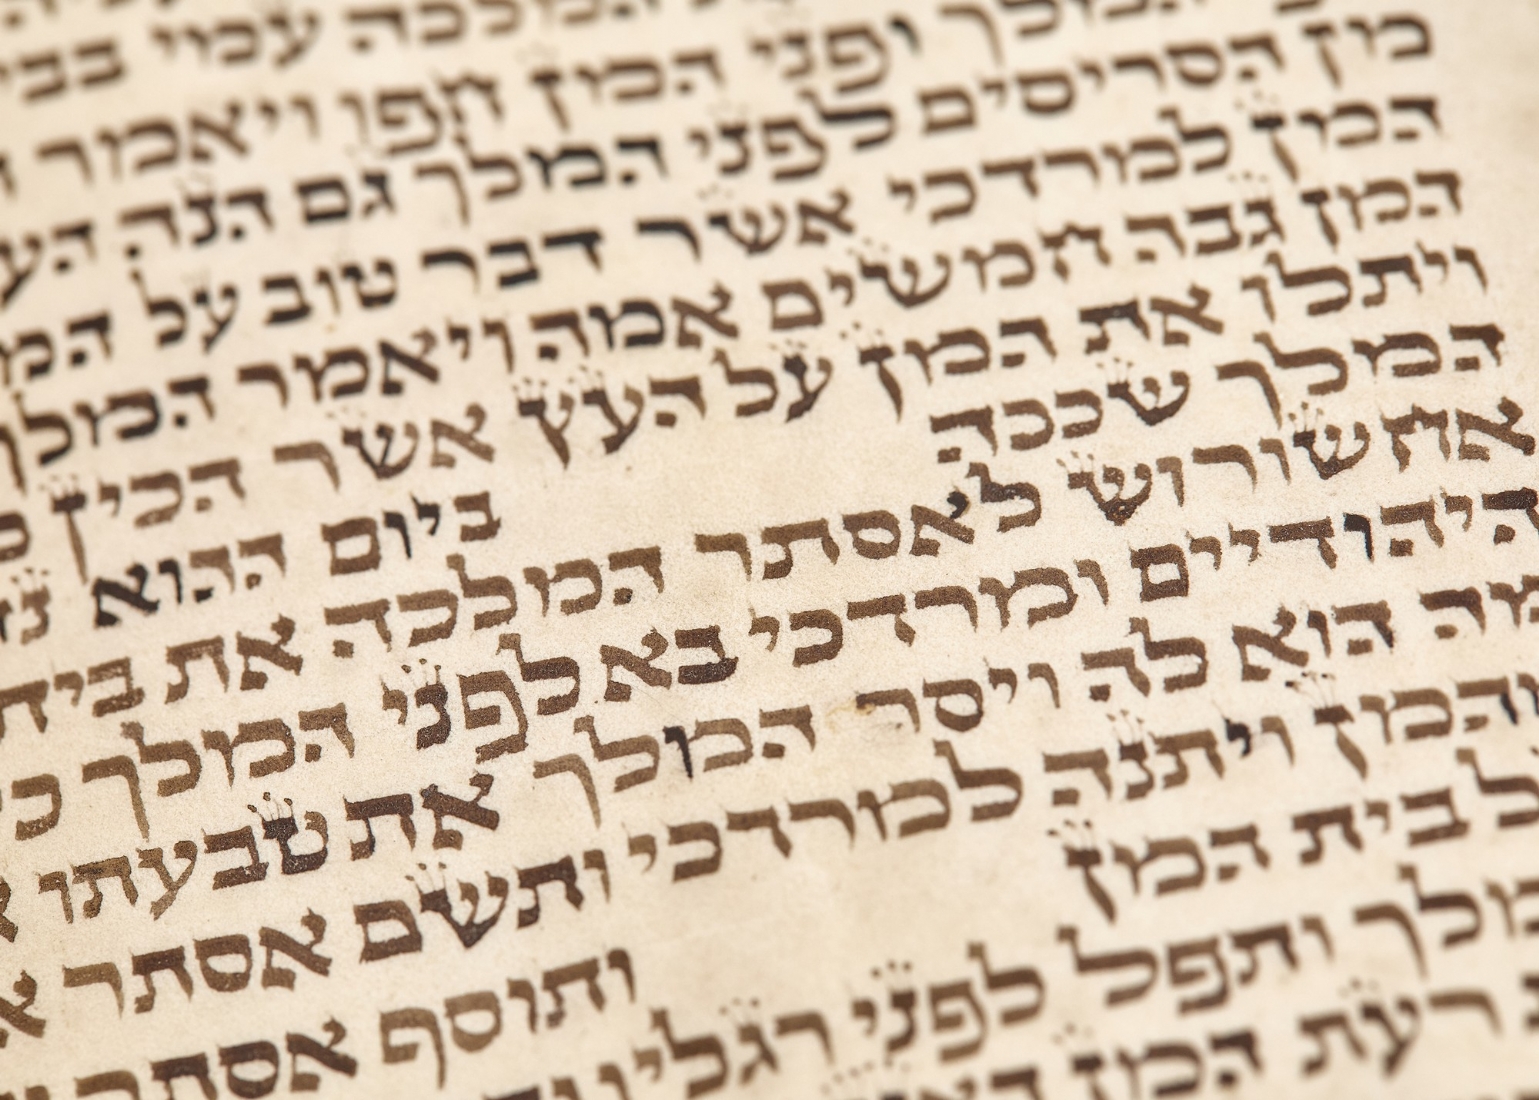 המלכה עמי בבי
המלך ופני המן חפו ויאמר
מן הסריסים לפני המלך גם הנה הע
המן למרדכי אשר דבר טוב על המ
המן גבה חמשים אמה ויאמר המלך
ויתלו את המן על העץ אשר הכין
המלך שככה ביום ההוא
אחשורוש לאסתר המלכה את בית
היהודיים ומרדכי בא לפני המלך כי
מה הוא לה ויסר המלך את טבעתו א
והמן ויתנה למרדכי ותשם אסתר א
ל בית המן ותוסף אסתר
מלך ותפל לפני רגליו
רעת המן